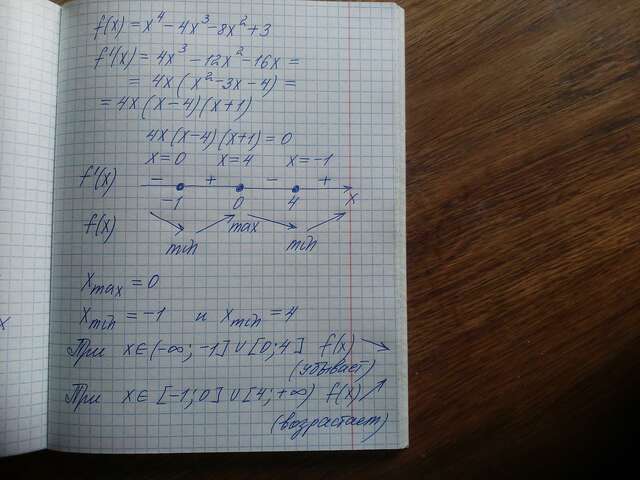 f(x) = x⁴ - 4x³ - 8x² + 3
f'(x) = 4x³ - 12x² - 16x =
= 4x(x² - 3x - 4) =
= 4x(x-4)(x+1)
4x(x-4)(x+1) = 0
x=0 x=4 x=-1
f'(x) - + - +
-1 0 4 x
f(x) ↘ ↗ ↘ ↗
min max min
x max = 0
x min = -1 и x min = 4
При x∈(-∞; -1]∪[0; 4] f(x) ↘
(убывает)
При x∈[-1; 0]∪[4; +∞) f(x) ↗
(возрастает)
x